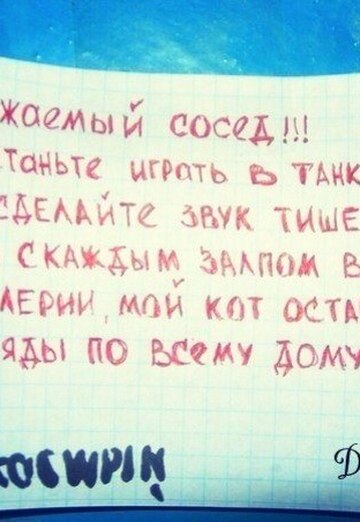 жаемый сосед!!!
таньте играть в танк
сделайте звук тише
с каждым залпом в
лерии, мой кот оста
яды по всему дому